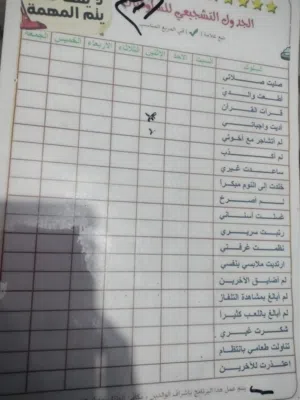 ينم المهمة
الجدول التشجيعي
ضع علامة ( ✓ ) في المربع
السلوك السبت الأحد الإثنين الثلاثاء الأربعاء الخميس الجمعة
صليت صلاتي
أطعت والدي
قرأت القرآن
أديت واجباتي
لم أتشاجر مع أخوتي
لم أكذب
ساعدت غيري
خلدت إلى النوم مبكرا
لم أصرخ
غسلت أسناني
رتبت سريري
نظفت غرفتي
ارتديت ملابسي بنفسي
لم أضايق الآخرين
لم أبالغ بمشاهدة التلفاز
لم أبالغ باللعب كثيرا
شكرت غيري
تناولت طعامي بانتظام
إعتذرت للآخرين
يتم عمل هذا البرنامج بإشراف الوالدين